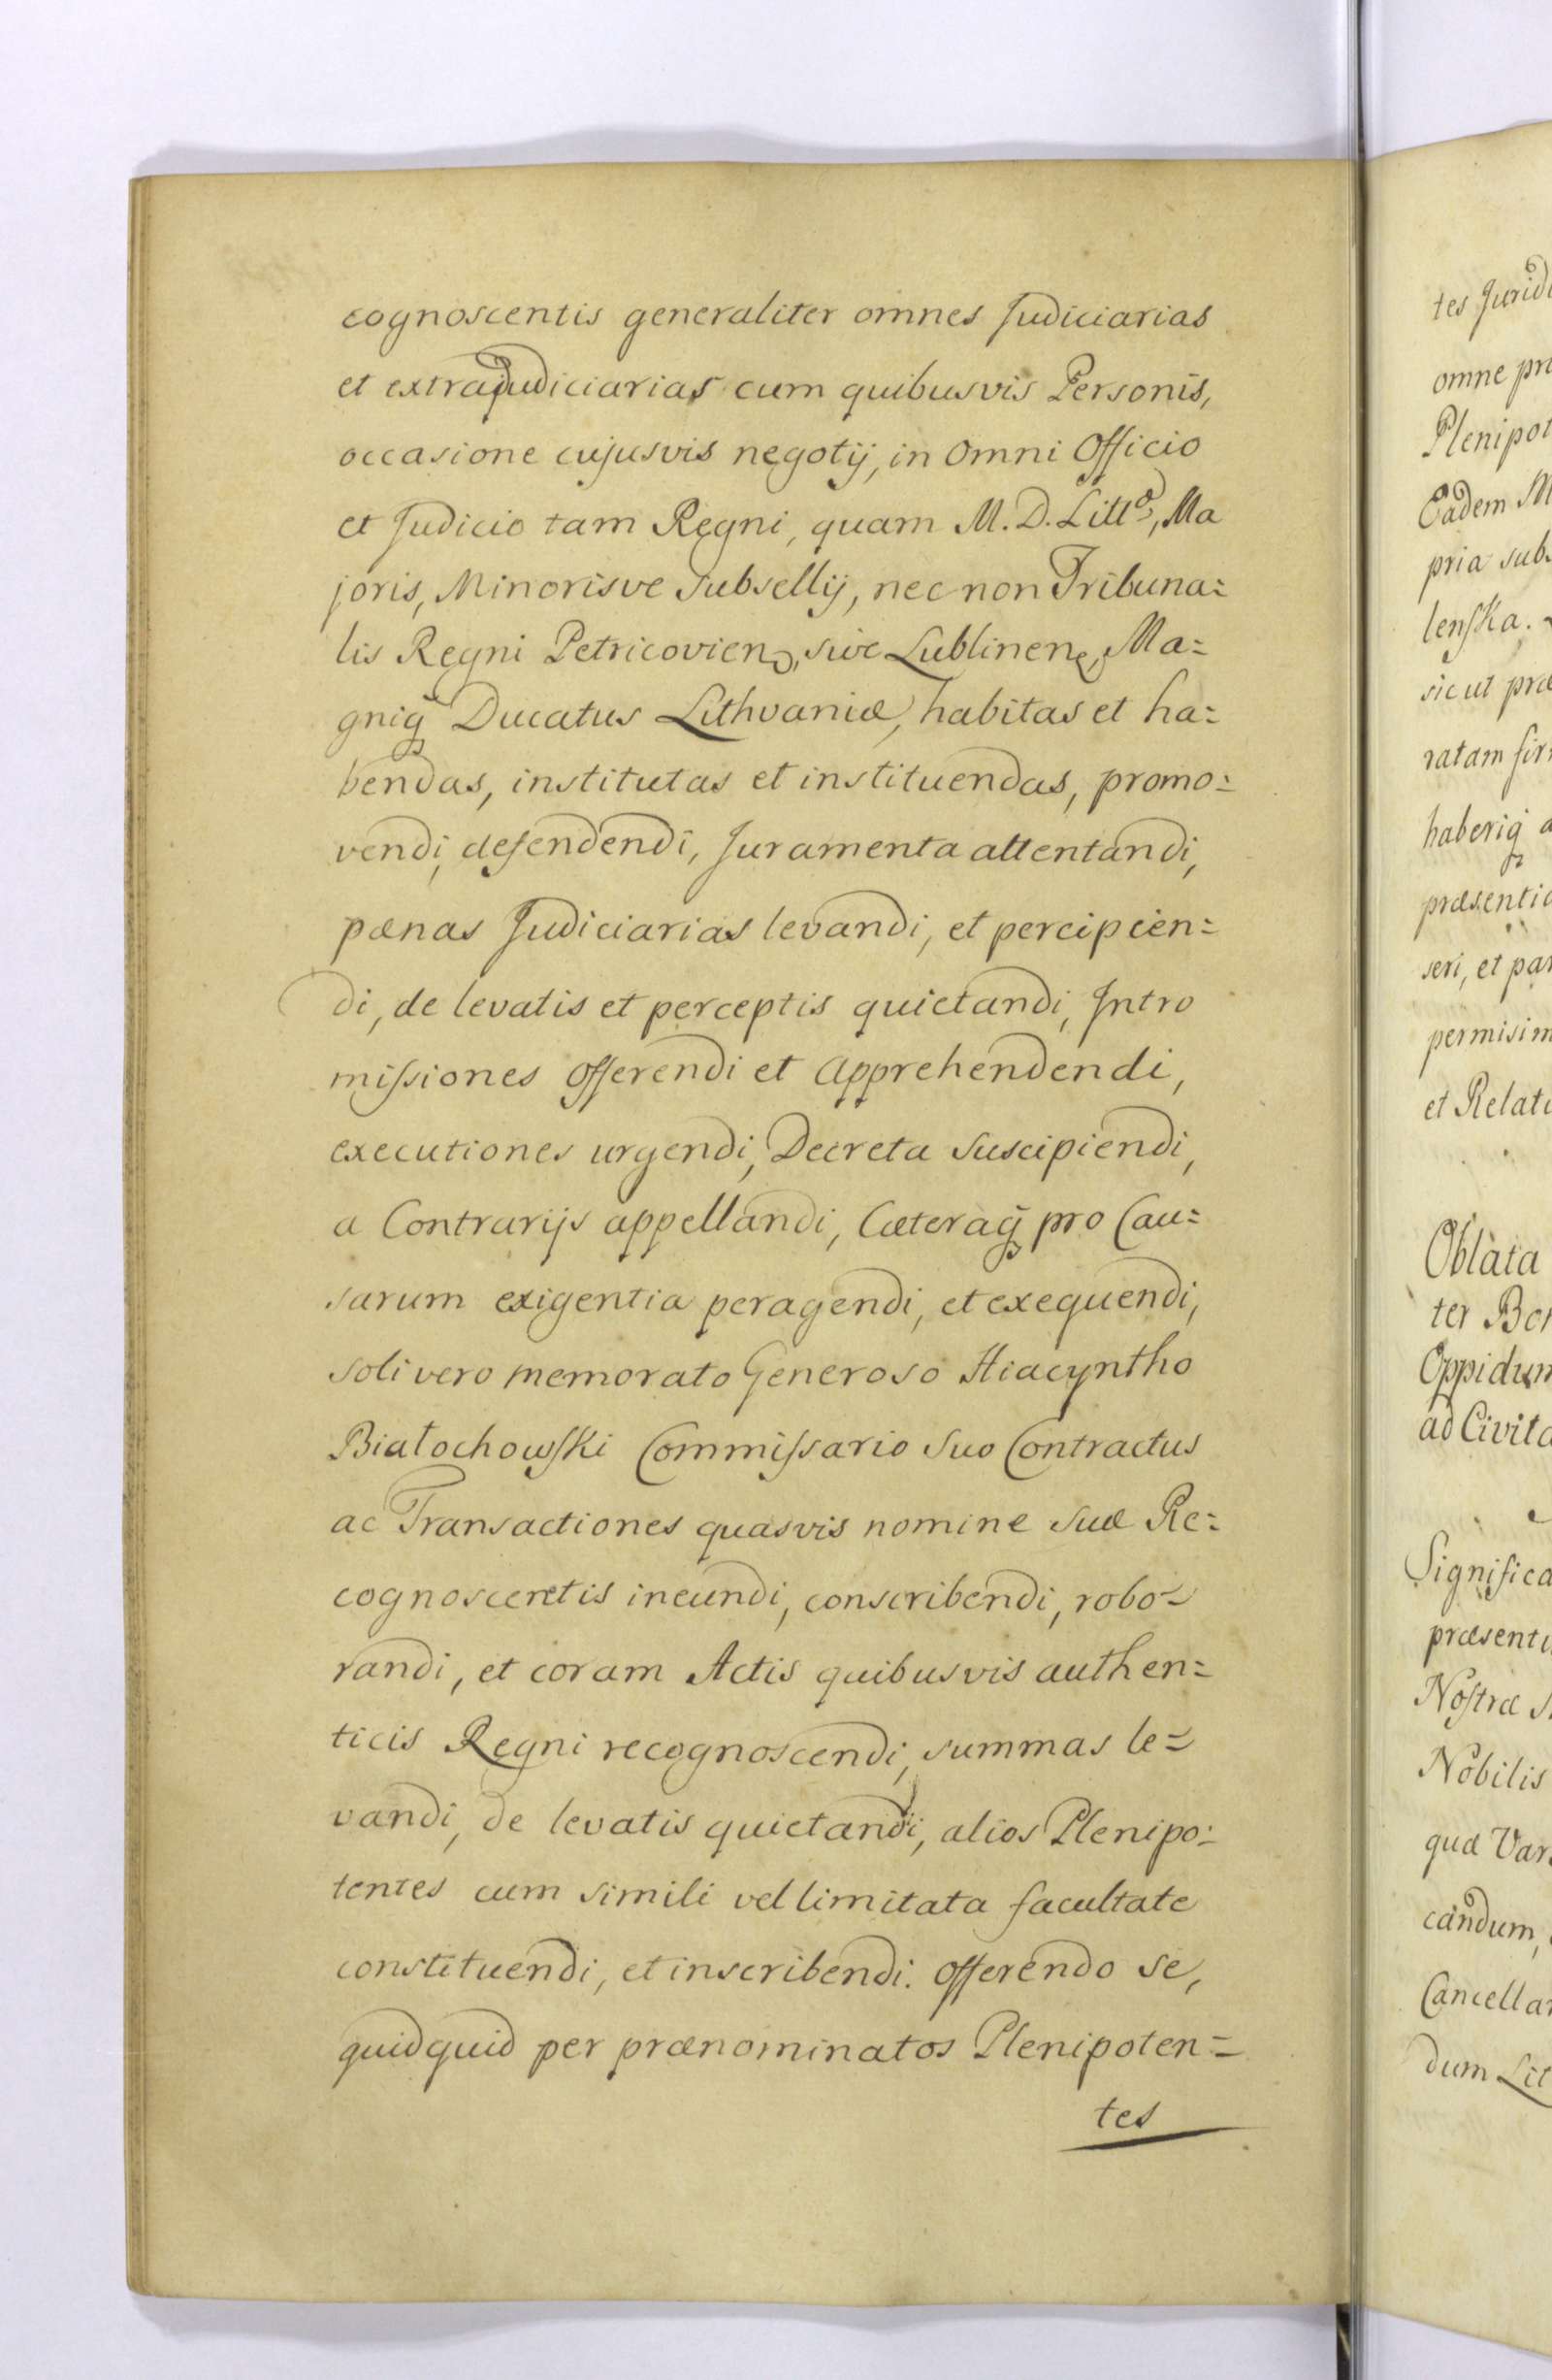 cognoscentis generaliter omnes Judiciarias
et extrajudiciarias cum quibusvis Personis,
occasione cujusvis negotij, in Omni Officio
et Judicio tam Regni, quam M. D. Litt., Ma
joris, Minorisve Subsellij, nec non Tribuna=
lis Regni Petricovien, sive Lublinen, Ma=
gniq Ducatus Lithvaniæ, habitas et ha=
bendas, institutas et instituendas, promo=
vendi, defendendi, Juramenta attentandi,
pænas Judiciarias levandi, et percipien=
di, de levatis et perceptis quietandi, Intro
missiones offerendi et Apprehendendi,
executiones urgendi, Decreta Suscipiendi,
a Contrarijs appellandi, Cæteraq pro Cau=
sarum exigentia peragendi, et exequendi,
soli vero memorato Generoso Hiacyntho
Białochowski Commissario Suo Contractus
ac Transactiones quasvis nomine Suæ Re=
cognoscentis ineundi, conscribendi, robo=
randi, et coram Actis quibusvis authen=
ticis Regni recognoscendi, summas le=
vandi, de levatis quietandi, alios Plenipo=
tentes cum simili vel limitata facultate
constituendi, et inscribendi. Offerendo se,
quidquid per prænominatos Plenipoten=
tes
tes Juridi
omne pr
Plenipot
Eadem M
pria subs
lenska.
sicut præ
ratam fir
haberiq a
præsentia
seri, et par
permisim
et Relat
Oblata
ter Bo
Oppidum
ad Civita
Significa
præsenti
Nostræ S
Nobilis
qua Var
candum,
Cancellar
dum Lit